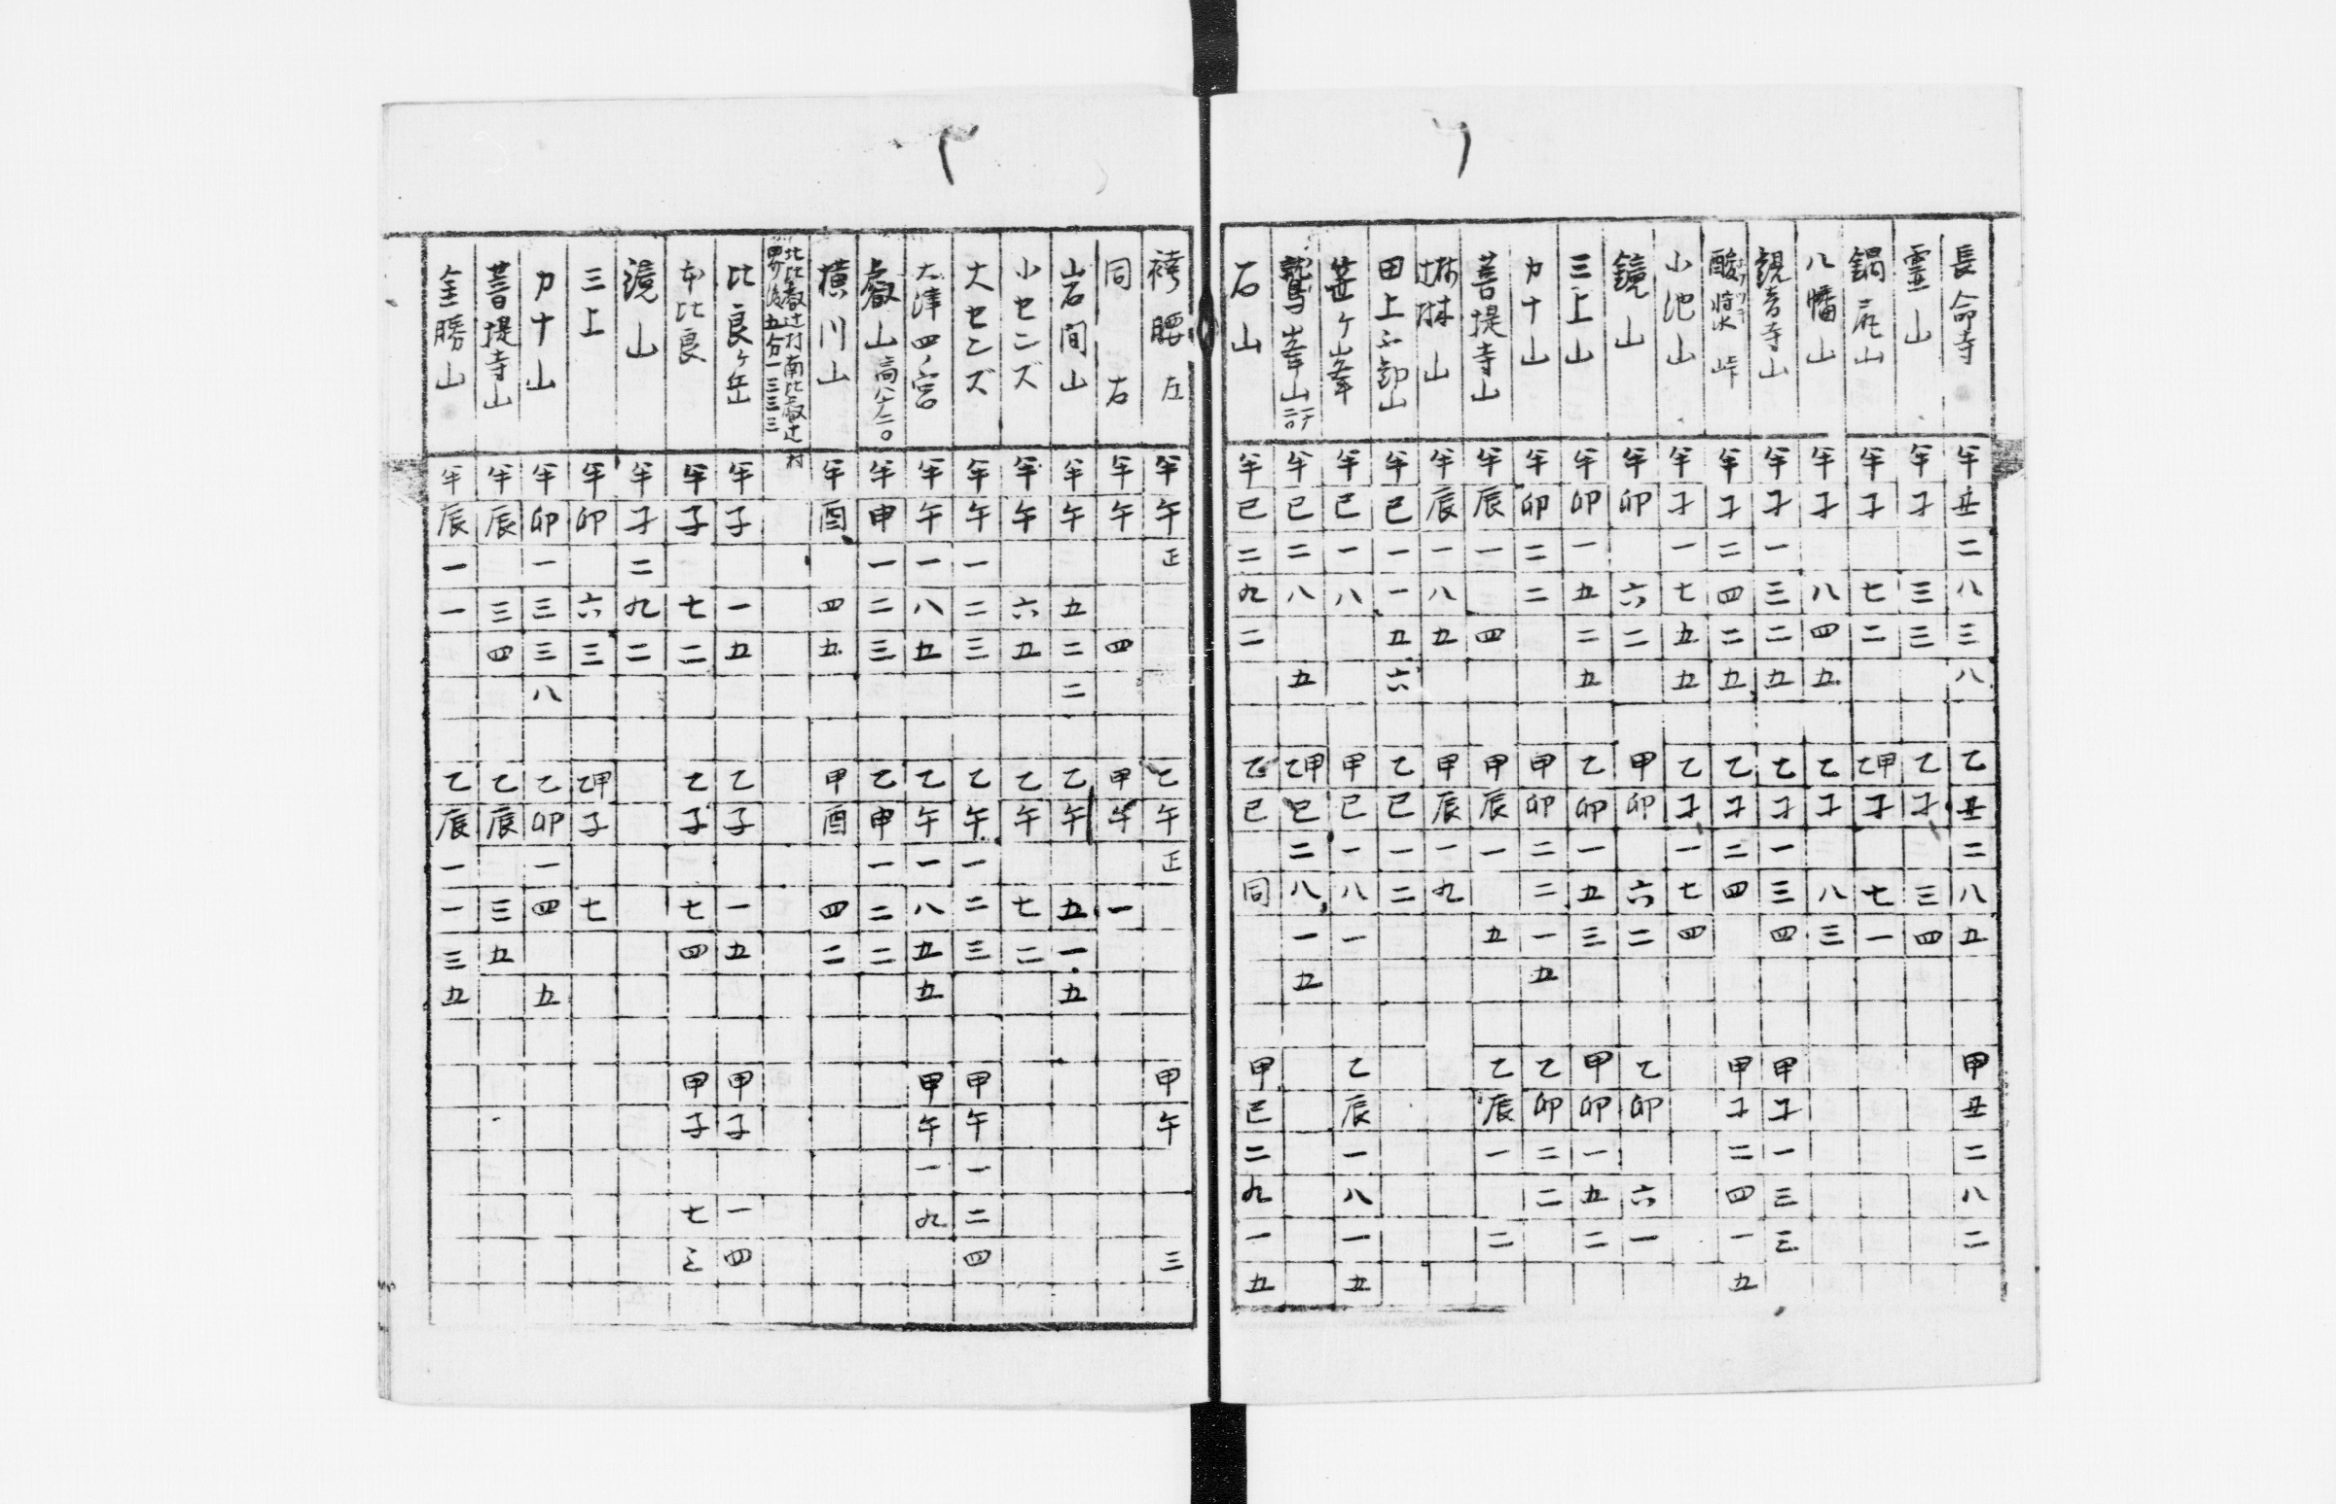 長命寺 半丑二八三八 乙丑二八五 甲丑二八二
霊山 半子三三 乙子三四
鍋尻山 半子七二 乙甲子七一
八幡山 半子八四五 乙子八三
観音寺山 半子一三二五 乙子一三四 甲子一三三
酸漿峠 半子二四二五 乙子二四 甲子二四一五
小池山 半子一七五五 乙子一七四
鏡山 半卯六二 甲卯六二 乙卯六一
三上山 半卯一五二五 乙卯一五三 甲卯一五二
カ十山 半卯二二 甲卯二二一五 乙卯二二
菩提寺山 半辰一四 甲辰一五 乙辰一二
山 半辰一八五 甲辰一九
田上不動山 半巳一一五六 乙巳一二
笠ケ峯 半巳一八 甲巳一八一 乙辰一八一五
鷲峯山 半巳二八五 乙甲巳二八一五
石山 半巳二九二 乙巳同 甲巳二九一五
袴腰左 半午正 乙午正 甲午三
同右 半午四 甲午一
岩間山 半午五二二 乙午五一五
小センズ 半午六五 乙午七二
大センズ 半午一二三 乙午一二三 甲午一二四
大津四ノ宮 半午一八五 乙午一八五五 甲午一九
叡山 半申一二三 乙申一二二
横川山 半酉四五 甲酉四二
北比叡辻村南比叡辻村
五分一三三三
比良ケ岳 半子一五 乙子一五 甲子一四
本比良 半子七二 乙子七四 甲子七三
鏡山 半子二九二
三上 半卯六三 乙甲子七
カ十山 半卯一三三八 乙卯一四五
菩提寺山 半辰三四 乙辰三五
金勝山 半辰一一 乙辰一一三五